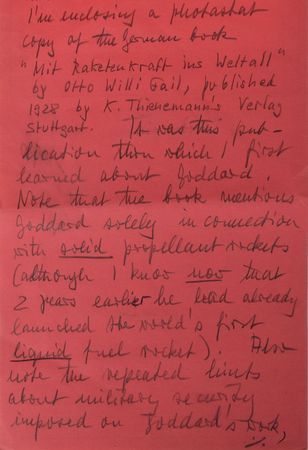 I'm enclosing a photostat
copy of the German book
"Mit Raketenkraft ins Weltall"
by Otto Willi Gail, published
1928 by K. Thienemann's Verlag
Stuttgart. It was this pub-
lication thru which I first
learned about Goddard.
Note that the book mentions
Goddard solely in connection
with solid propellant rockets
(although I know now that
2 years earlier he had already
launched the world's first
liquid fuel rocket). Also
note the repeated hints
about military security
imposed on Goddard's work,